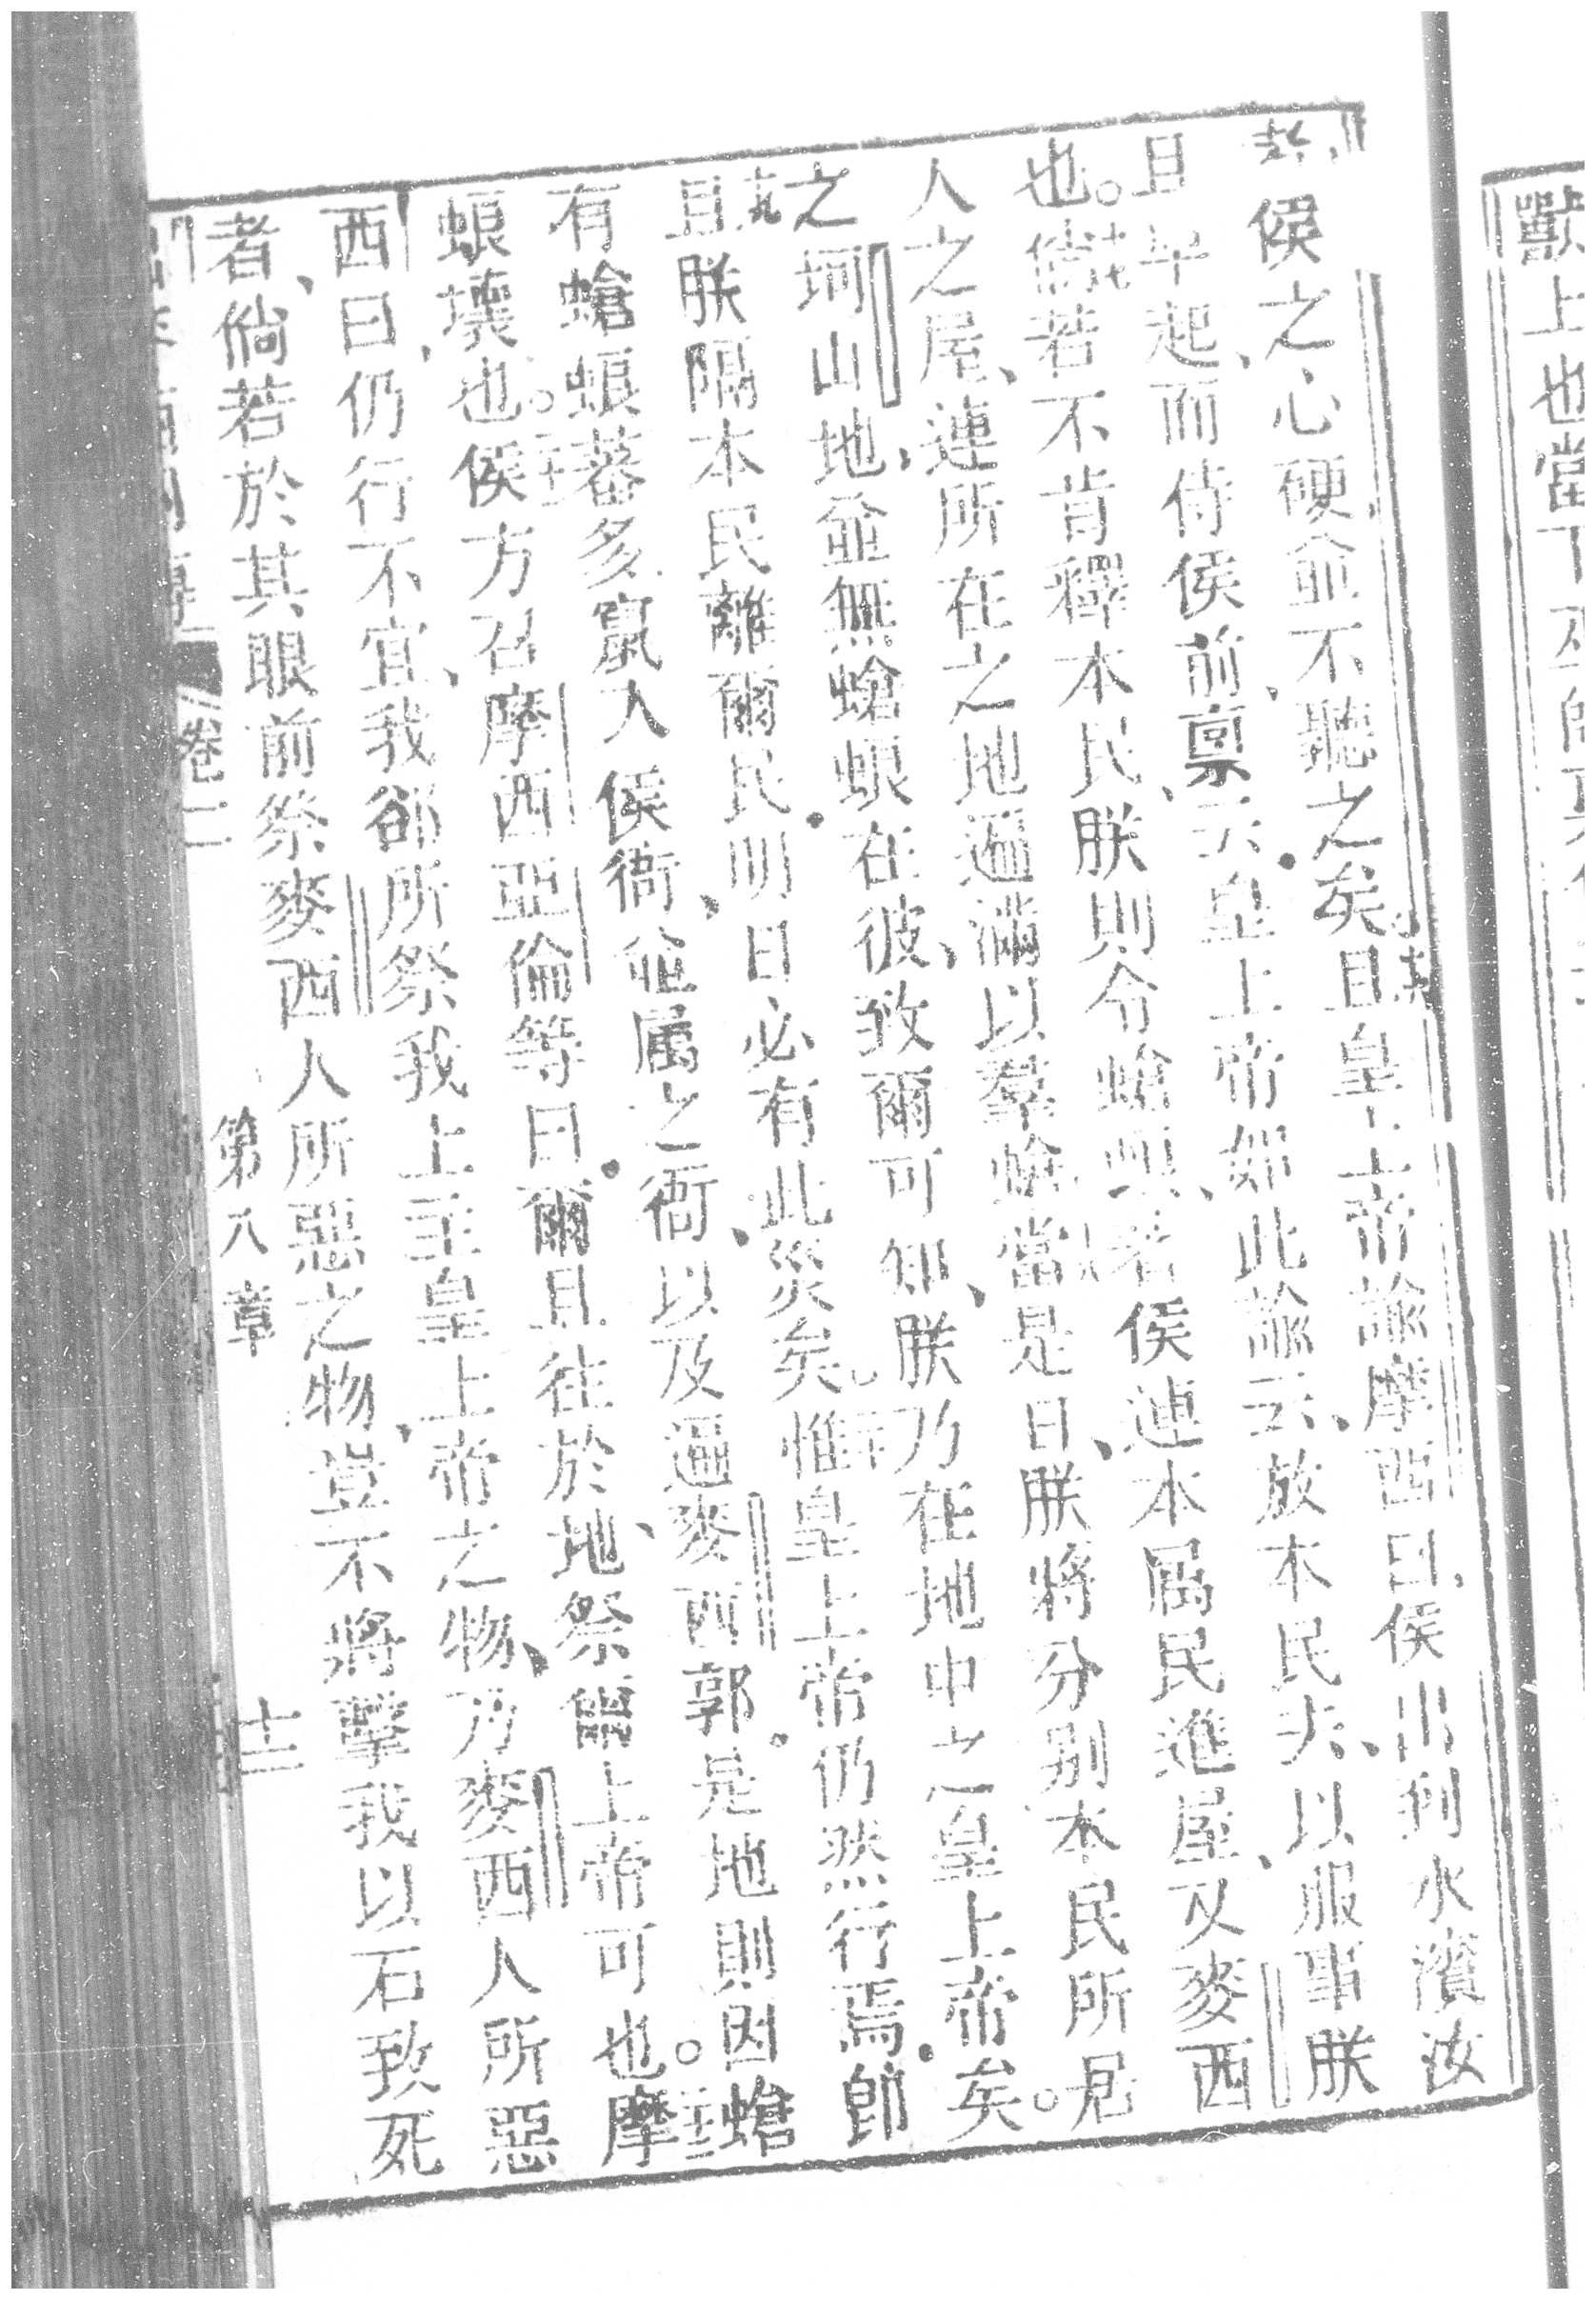 獸上也當下
侯之心硬並不聽之矣。且皇上帝諭摩西曰、侯出到水濱汝
且早起、而侍侯前禀云、皇上帝如此諭云、放本民去、以服事朕
也。倘若不肯釋本民、朕則令螥蜋着侯、連本屬民進屋、又麥西
人之屋、連所在之地遍滿以羣螥。當是日、朕將分別本民所居
之坷山地、並無螥蜋在彼、致爾可知朕乃在地中之皇上帝矣。
且朕隔本民離爾民、明日必有此災矣。惟皇上帝仍然行焉、卽
有螥蜋蕃多竄入侯衙並屬之衙、以及遍麥西郭、是地則因螥
蜋壞也。侯方召摩西亞倫等曰、爾且往於地、祭爾上帝可也。摩
西曰、仍行不宜、我卻所祭我上主皇上帝之物、乃麥西人所惡
者、倘若於其眼前祭麥西人所惡之物、豈不將擊我以石致死
卷二 第八章 十二